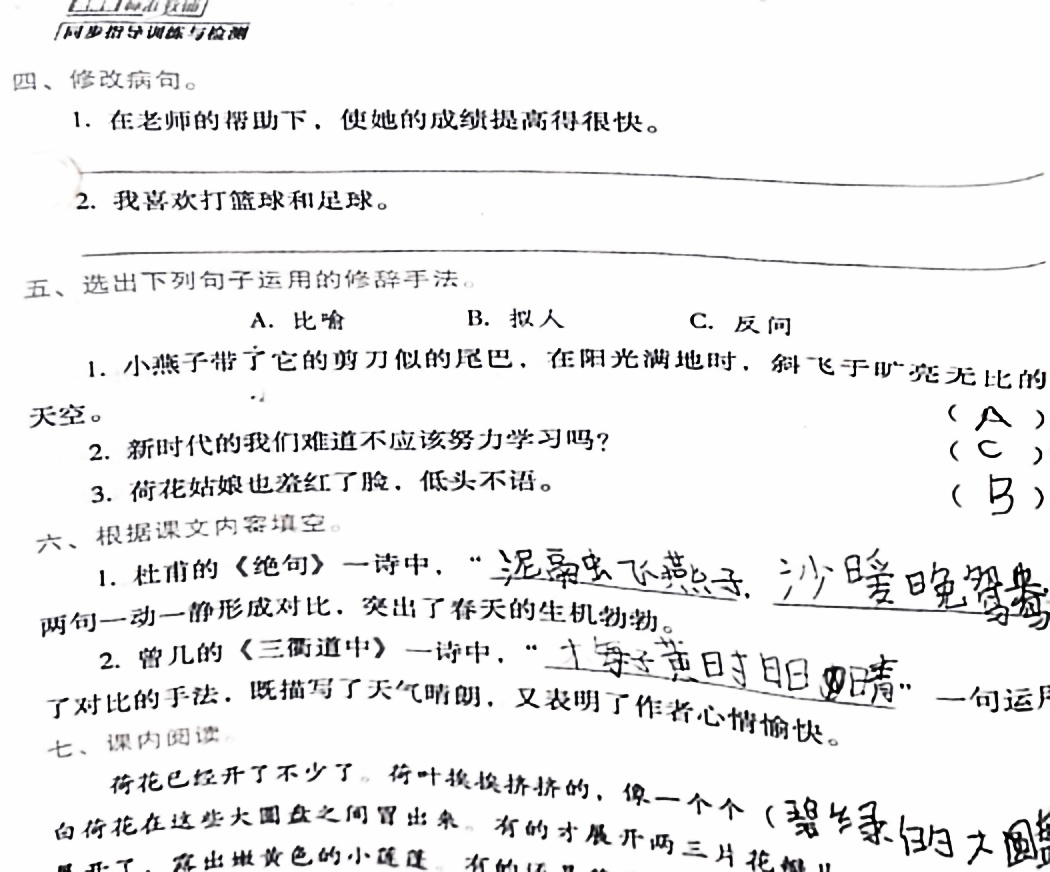 同步指导训练与检测
四、修改病句。
1. 在老师的帮助下，使她的成绩提高得很快。
2. 我喜欢打篮球和足球。
五、选出下列句子运用的修辞手法。
A. 比喻 B. 拟人 C. 反问
1. 小燕子带了它的剪刀似的尾巴，在阳光满地时，斜飞于旷亮无比的
天空。 ( A )
2. 新时代的我们难道不应该努力学习吗? ( C )
3. 荷花姑娘也羞红了脸，低头不语。 ( B )
六、根据课文内容填空。
1. 杜甫的《绝句》一诗中，“泥融飞燕子，沙暖晚鸳鸯
两句一动一静形成对比，突出了春天的生机勃勃。
2. 曾几的《三衢道中》一诗中，“梅子黄时日日晴” 一句运用
了对比的手法，既描写了天气晴朗，又表明了作者心情愉快。
七、课内阅读。
荷花已经开了不少了。荷叶挨挨挤挤的，像一个个（碧绿的大圆盘
白荷花在这些大圆盘之间冒出来。有的才展开两三片花瓣儿
展开了，露出嫩黄色的小莲蓬。有的还